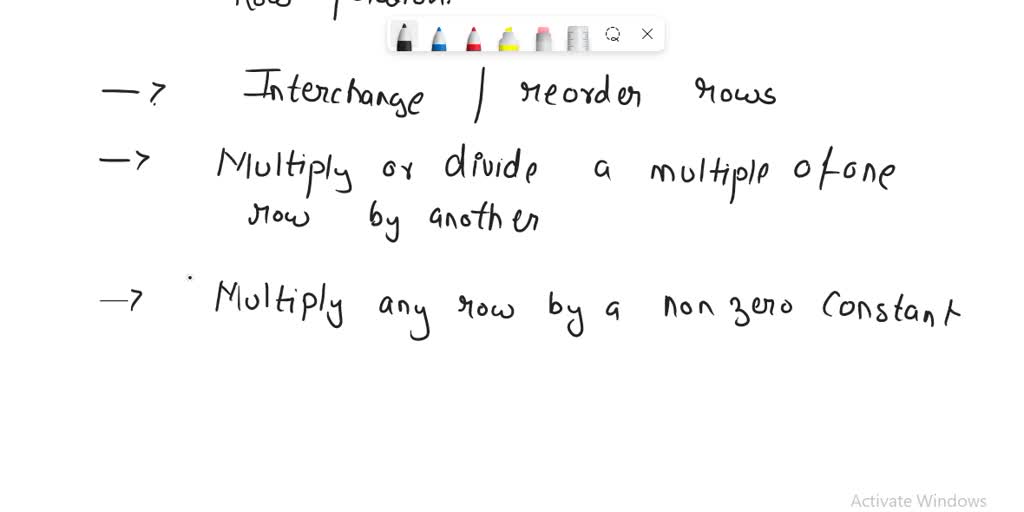 Row
→ Interchange / reorder rows
→ Multiply or divide a multiple of one
row by another
→ Multiply any row by a non zero constant
Activate Windows